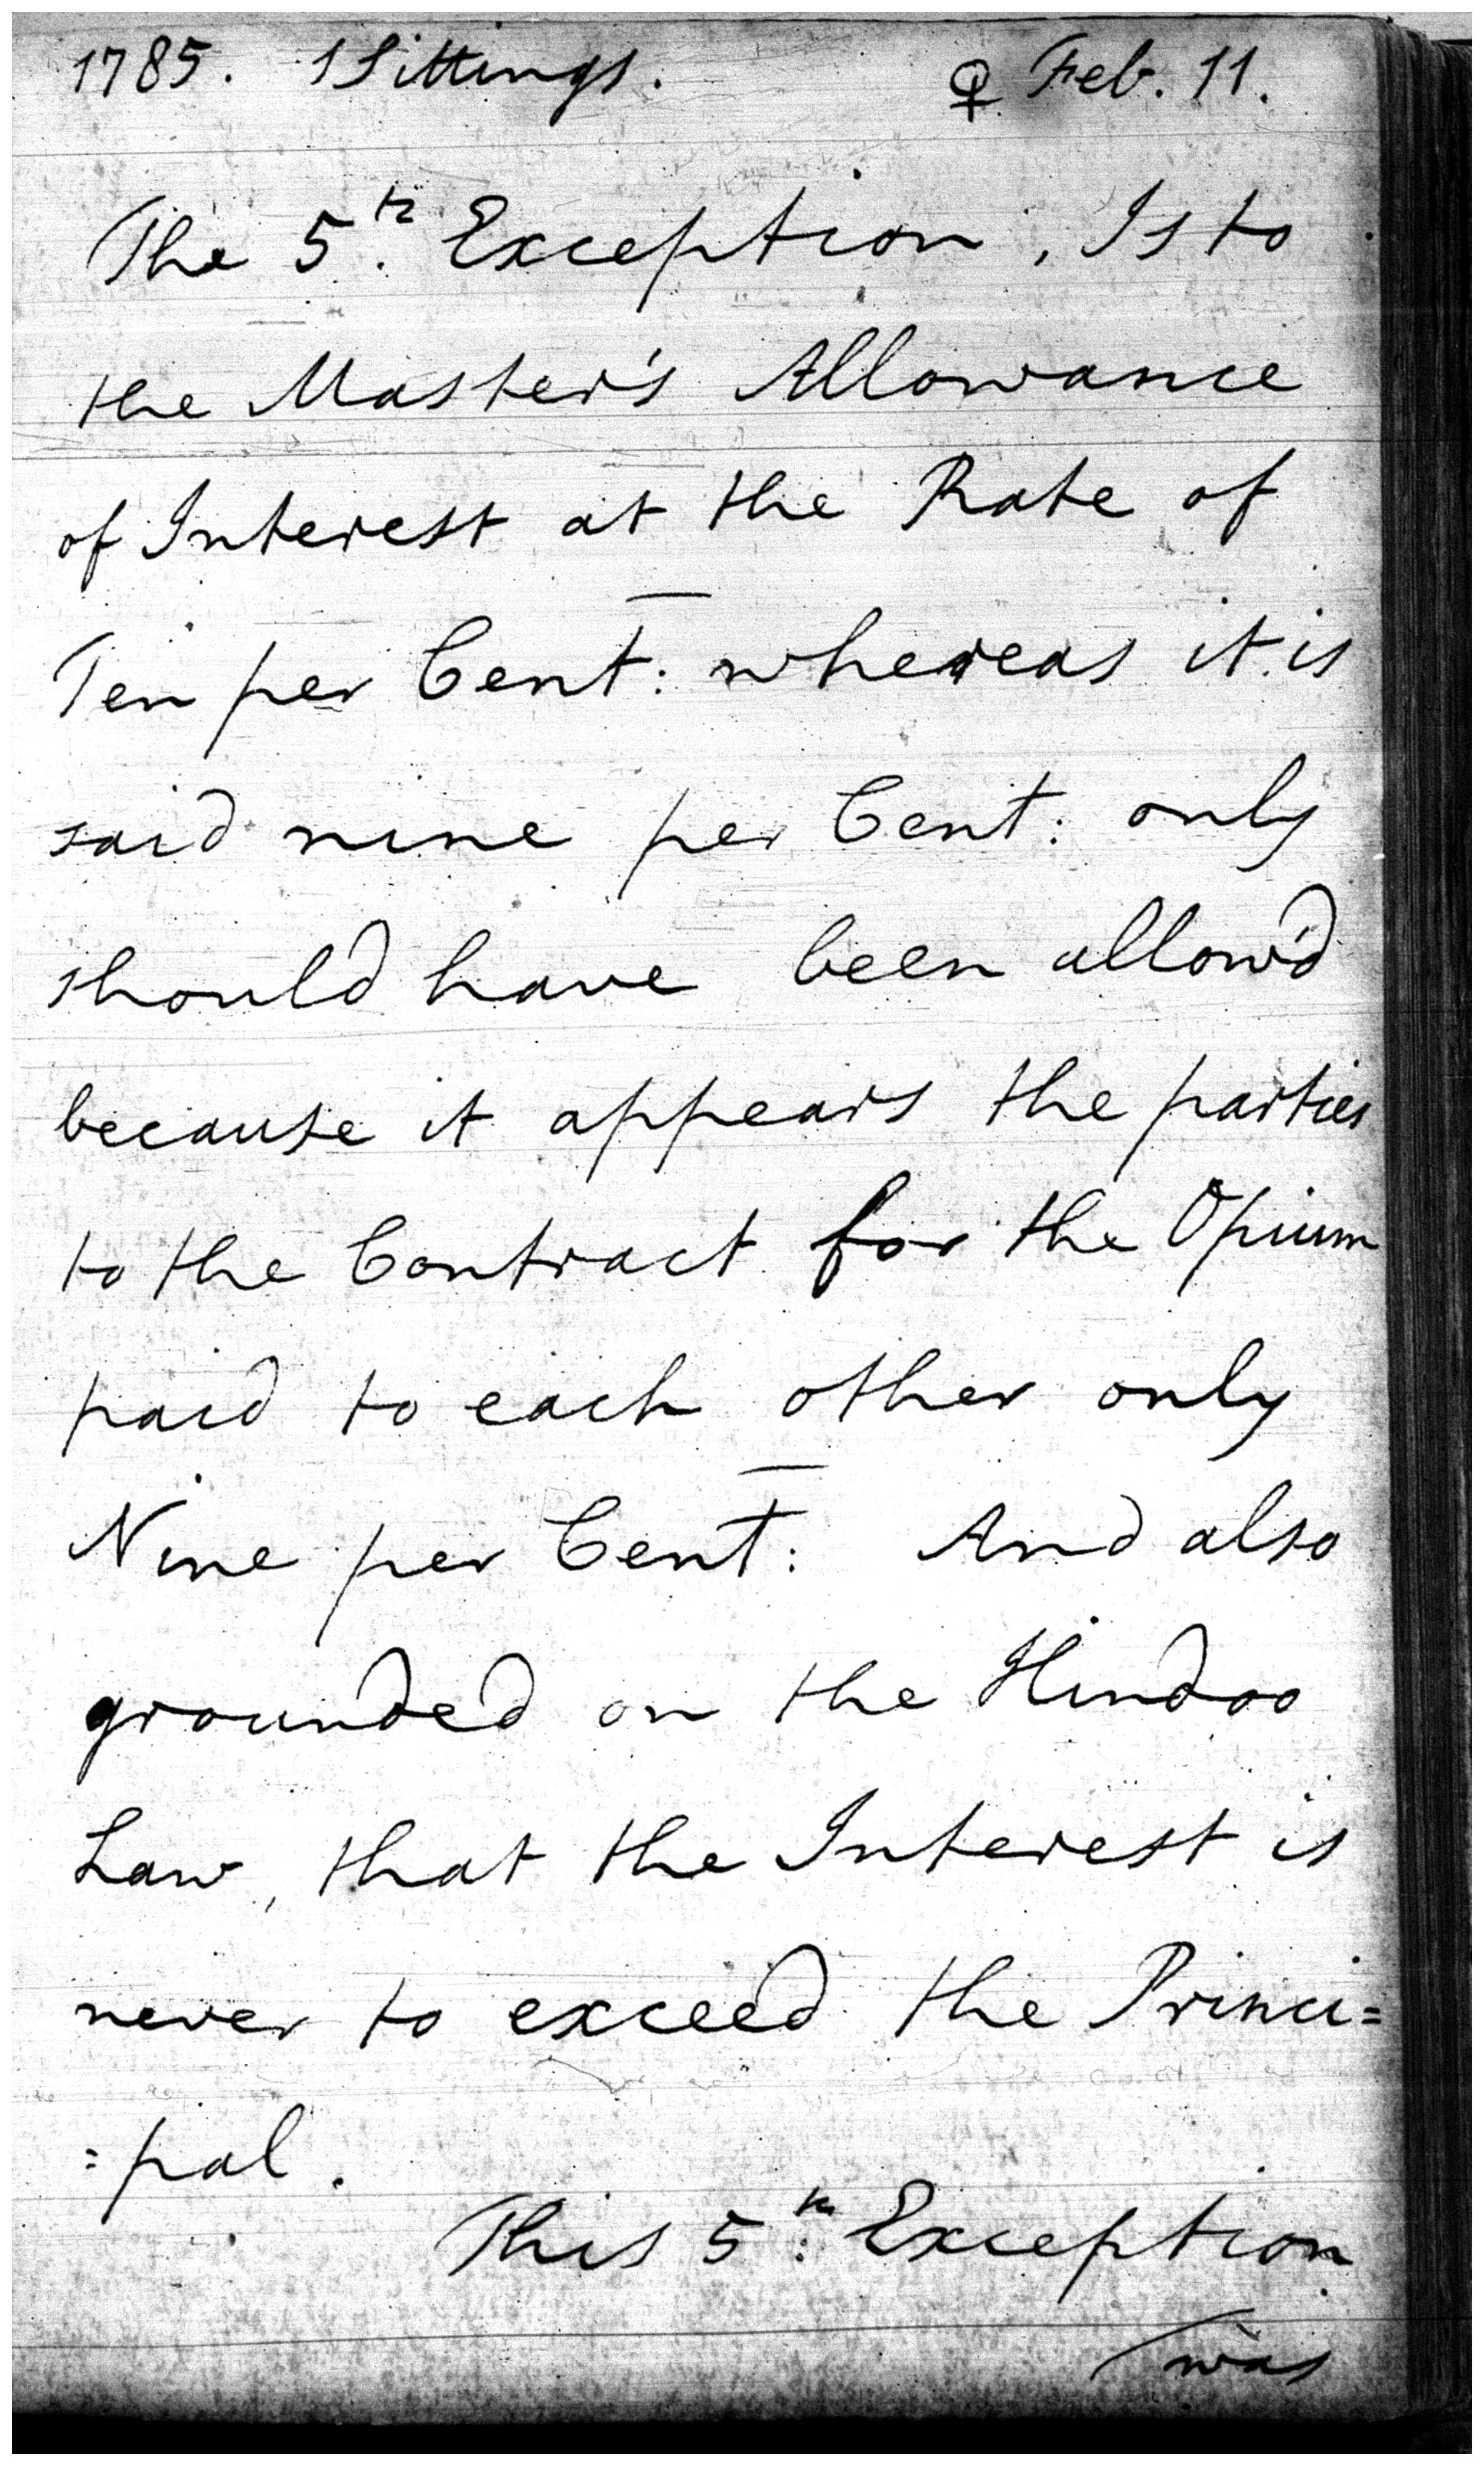 1785. 1 Sittings. ♀ Feb. 11.
The 5th. Exception, Is to
the Master's Allowance
of Interest at the Rate of
Ten per Cent: whereas it is
said nine per Cent: only
should have been allow'd
because it appears the parties
to the Contract for the Opium
paid to each other only
Nine per Cent: And also
grounded on the Hindoo
Law, that the Interest is
never to exceed the Princi=
=pal.
This 5th: Exception
was